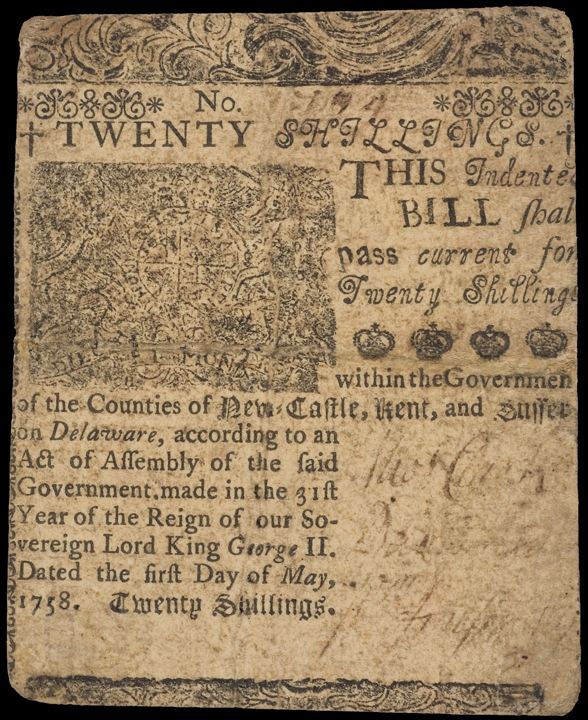 No.
TWENTY SHILLINGS.
THIS Indente
BILL ſhal
paſs current for
Twenty Shilling
within the Governmen
of the Counties of New-Caſtle, Kent, and Suſſex
on Delaware, according to an
Act of Aſſembly of the ſaid
Government, made in the 31ſt
Year of the Reign of our So-
vereign Lord King George II.
Dated the firſt Day of May,
1758. Twenty Shillings.